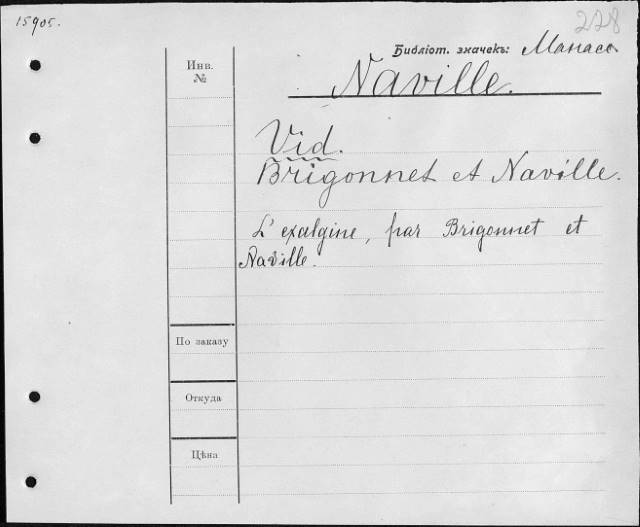 15905.
228
Библіот. значекъ: Манасе
Инв.
№
Naville.
Vid.
Brigonnet et Naville.
L'exalgine, par Brigonnet et
Naville.
По заказу
Откуда
Цѣна